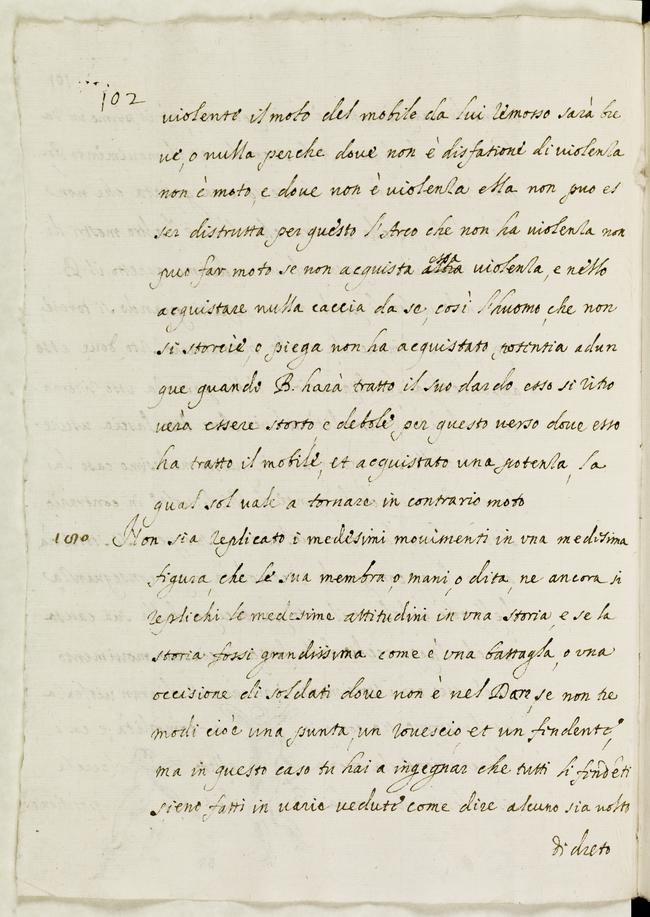 102
violente il moto del mobile da lui remosso sarà bre
ve, o nulla perche dove non è disfatione di violenza
non è moto, e dove non è violenza ella non puo es
ser distrutta per questo l'Arco che non ha violenza non
puo far moto se non acquista essa violenza, e nello
acquistare nulla caccia da se, così l'huomo, che non
si storcie, o piega non ha acquistato potentia adun
que quando B. harà tratto il suo dardo esso si ritro
verà essere storto, e debole per questo verso dove esso
ha tratto il mobile, et acquistato una potenza, la
qual sol vale a tornare in contrario moto
Non sia replicato i medesimi movimenti in vna medesima
figura, che le sua membra, o, mani, o dita, ne ancora si
replichi le medesime attitudini in vna storia, e se la
storia fossi grandissima come è vna battaglia, o vna
occisione di soldati dove non è nel Dare, se non tre
modi cioè una punta, un rovescio, et un findente,
ma in questo caso tu hai a ingegnar che tutti li findēti
sieno fatti in varie vedute come dire alcuno sia volto
di dreto